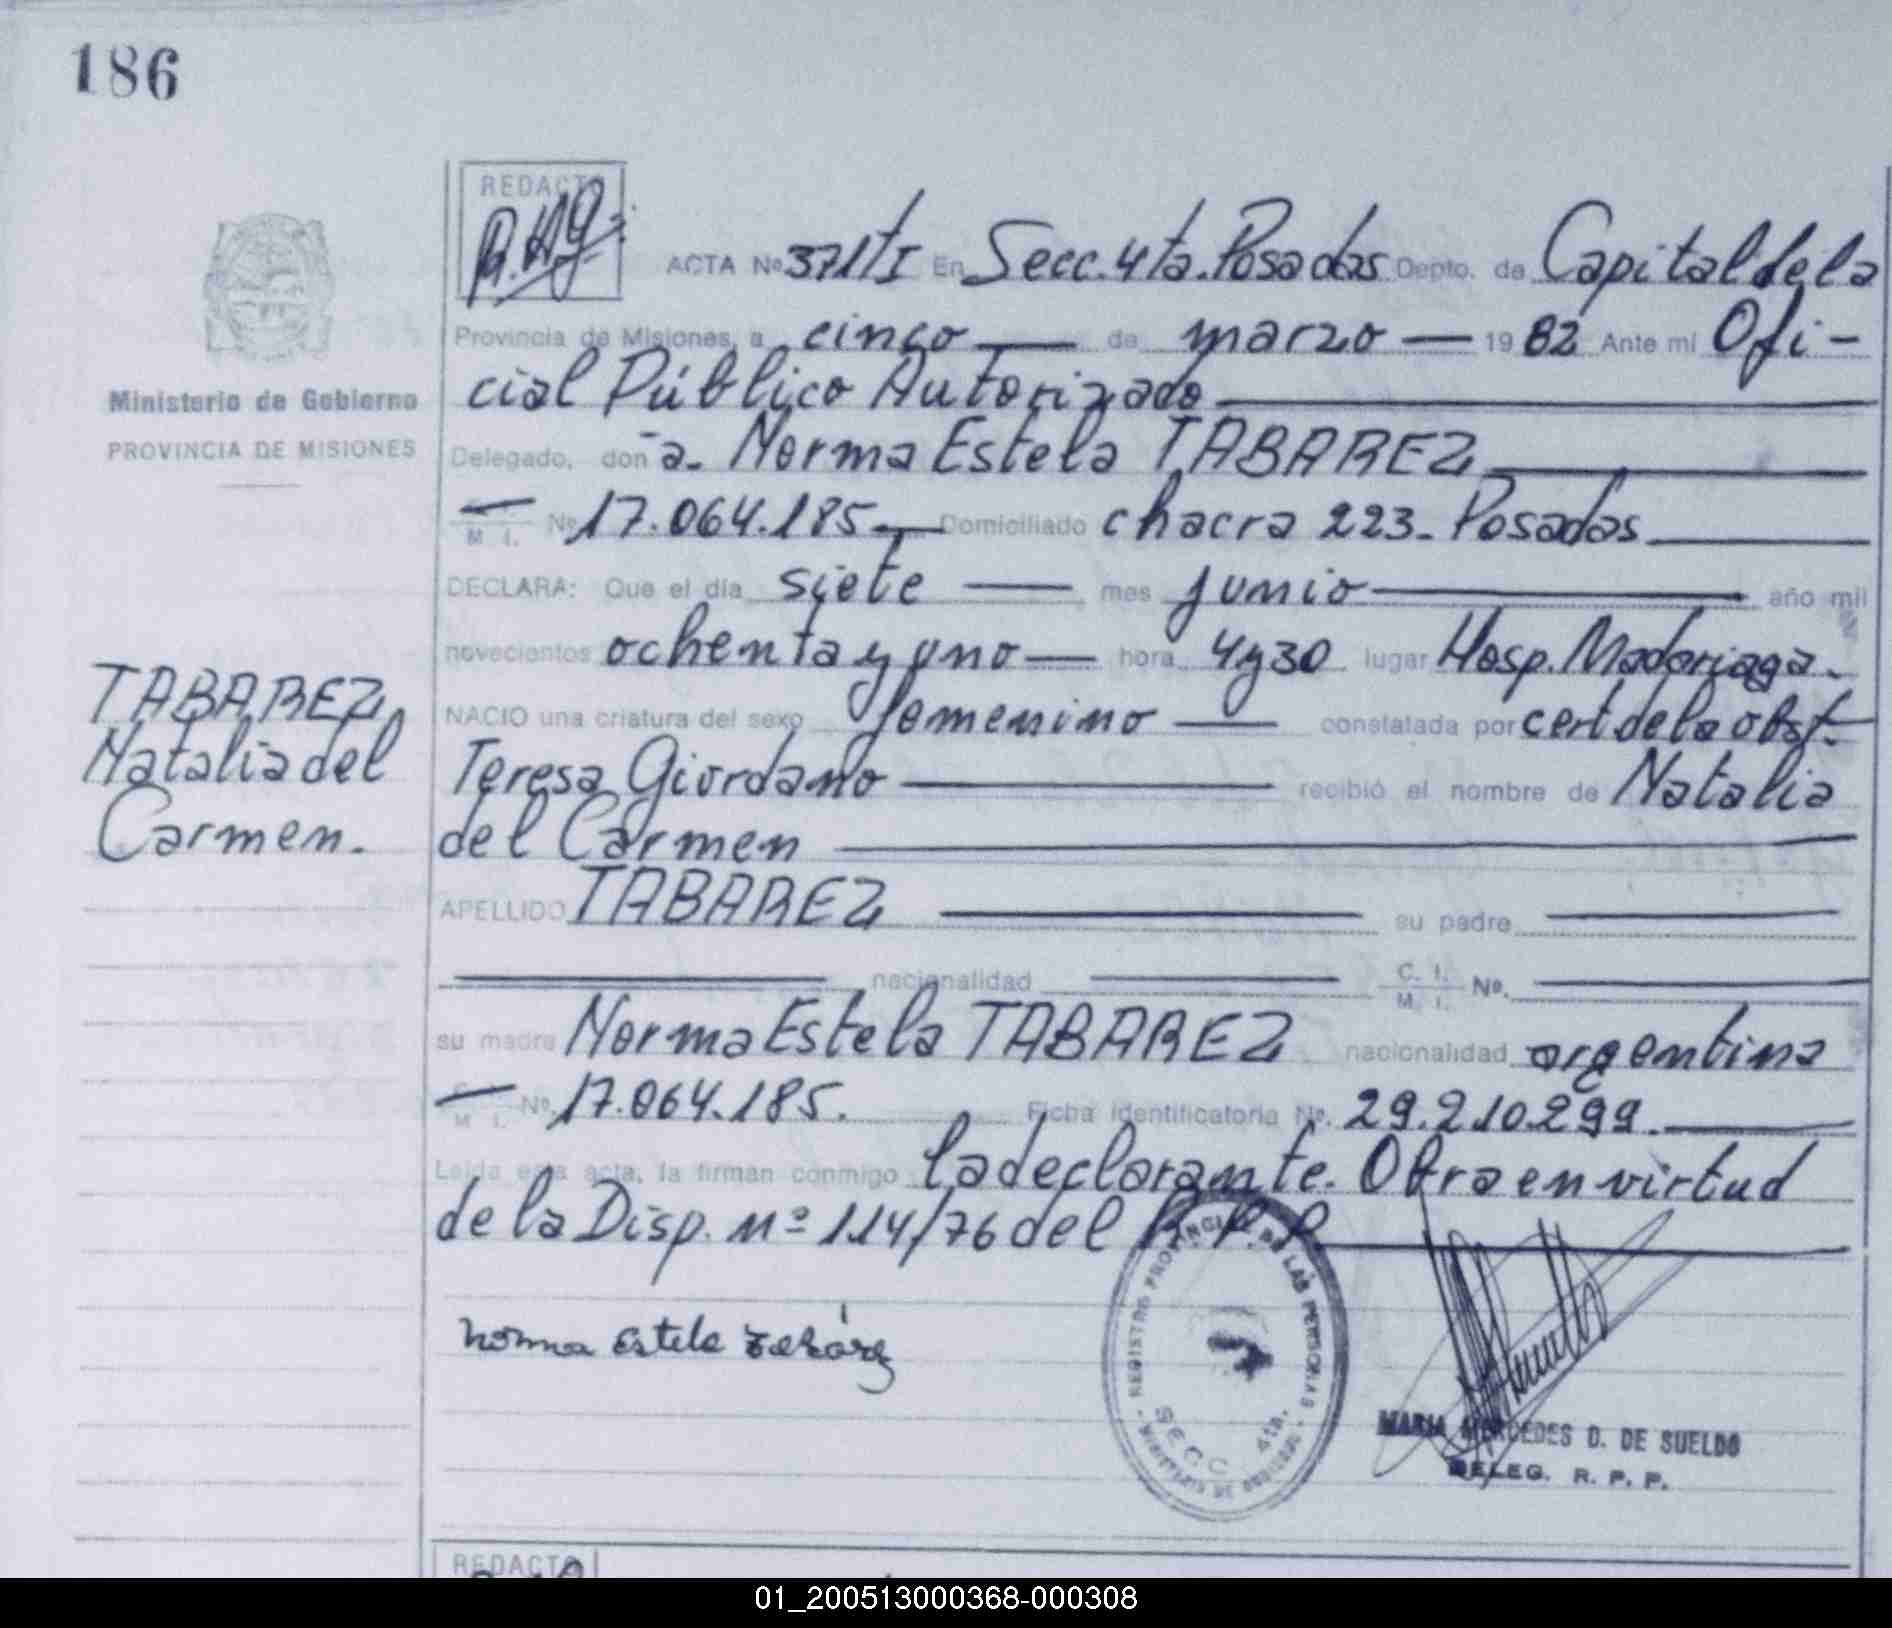 186
REDACTO
ACTA Nº 371 T I En Secc. 4ta. Posadas Depto. de Capital de la
Provincia de Misiones, a cinco — de marzo — 1982 Ante mí Ofi-
cial Público Autorizado
Ministerio de Gobierno
PROVINCIA DE MISIONES
Delegado, don a. Norma Estela TABAREZ
M. I. Nº 17.064.185 Domiciliado chacra 223. Posadas
DECLARA: Que el día siete — mes junio — año mil
novecientos ochenta y uno — hora 4 y 30 lugar Hosp. Madariaga.
NACIO una criatura del sexo femenino — constatada por cert de la obst.
Teresa Giordano — recibió el nombre de Natalia
del Carmen
TABAREZ
Natalia del
Carmen.
APELLIDO TABAREZ — su padre —
— nacionalidad — C. I. M. I. Nº. —
su madre Norma Estela TABAREZ nacionalidad argentina
C. I. M. I. Nº. 17.064.185. Ficha identificatoria Nº. 29.210.299.
Leída esta acta, la firman conmigo la declarante. Obra en virtud
de la Disp. Nº 114/76 del R. P. P.
Norma Estela Tabárez
REGISTRO PROVINCIAL DE LAS PERSONAS
SECC. 4ta.
MARIA MERCEDES D. DE SUELDO
DELEG. R. P. P.
REDACTO
01_200513000368-000308